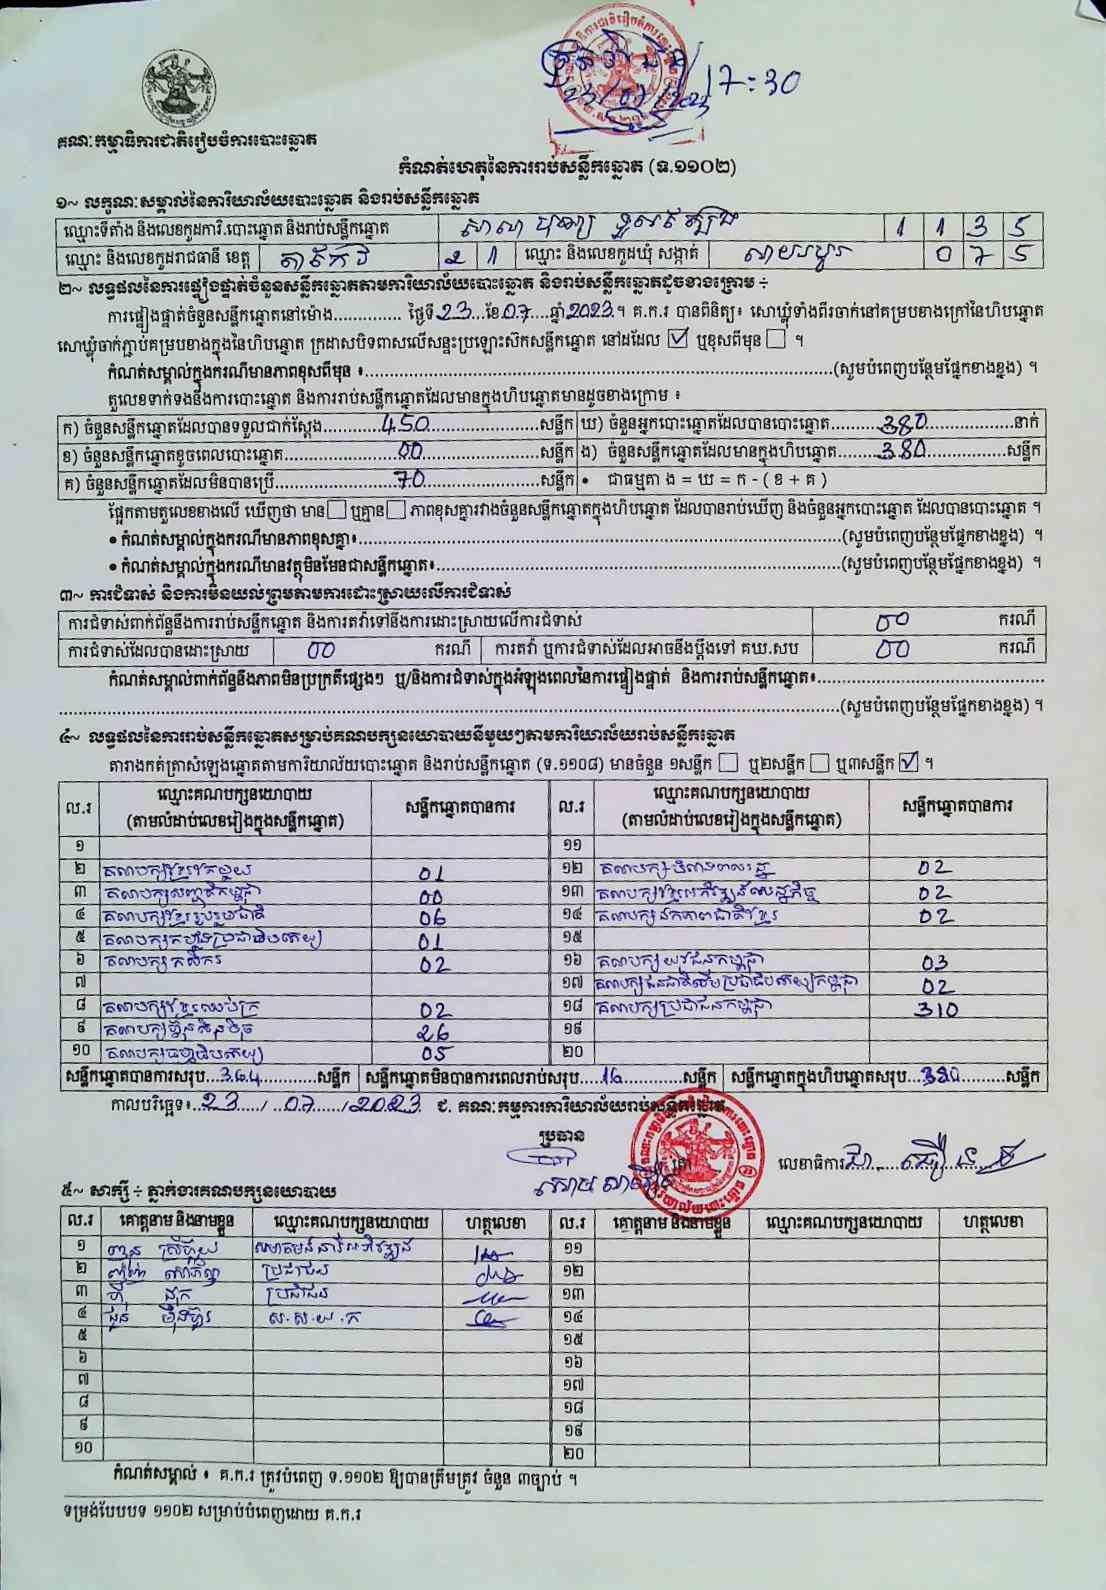 17:30
គណៈកម្មាធិការជាតិរៀបចំការបោះឆ្នោត
កំណត់ហេតុនៃការរាប់សន្លឹកឆ្នោត (ទ.១១០២)
១~ លក្ខណៈសម្គាល់នៃការិយាល័យបោះឆ្នោត និងរាប់សន្លឹកឆ្នោត
ឈ្មោះទីតាំង និងលេខកូដការិ.បោះឆ្នោត និងរាប់សន្លឹកឆ្នោត សាលា 1 1 3 5
ឈ្មោះ និងលេខកូដរាជធានី ខេត្ត តាកែវ 2 1 ឈ្មោះ និងលេខកូដឃុំ សង្កាត់ 0 7 5
២~ លទ្ធផលនៃការផ្ទៀងផ្ទាត់ចំនួនសន្លឹកឆ្នោតតាមការិយាល័យបោះឆ្នោត និងរាប់សន្លឹកឆ្នោតដូចខាងក្រោម ÷
ការផ្ទៀងផ្ទាត់ចំនួនសន្លឹកឆ្នោតនៅម៉ោង.............. ថ្ងៃទី 23 ខែ 07 ឆ្នាំ 2023 ។ គ.ក.រ បានពិនិត្យ៖ សោឃ្លុំទាំងពីរចាក់នៅគម្របខាងក្រៅនៃហិបឆ្នោត
សោឃ្លុំចាក់ភ្ជាប់គម្របខាងក្នុងនៃហិបឆ្នោត ក្រដាសបិទពាសលើសន្ទះប្រឡោះស៊កសន្លឹកឆ្នោត នៅដដែល ☑ ឬខុសពីមុន ☐ ។
កំណត់សម្គាល់ក្នុងករណីមានភាពខុសពីមុន ៖..............(សូមបំពេញបន្ថែមផ្នែកខាងខ្នង) ។
តួលេខទាក់ទងនឹងការបោះឆ្នោត និងការរាប់សន្លឹកឆ្នោតដែលមានក្នុងហិបឆ្នោតមានដូចខាងក្រោម ៖
ក) ចំនួនសន្លឹកឆ្នោតដែលបានទទួលជាក់ស្តែង 450 សន្លឹក ឃ) ចំនួនអ្នកបោះឆ្នោតដែលបានបោះឆ្នោត 380 នាក់
ខ) ចំនួនសន្លឹកឆ្នោតខូចពេលបោះឆ្នោត 00 សន្លឹក ង) ចំនួនសន្លឹកឆ្នោតដែលមានក្នុងហិបឆ្នោត 380 សន្លឹក
គ) ចំនួនសន្លឹកឆ្នោតដែលមិនបានប្រើ 70 សន្លឹក • ជាធម្មតា ង = ឃ = ក - ( ខ + គ )
ផ្អែកតាមតួលេខខាងលើ ឃើញថា មាន ☐ ឬគ្មាន ☐ ភាពខុសគ្នារវាងចំនួនសន្លឹកឆ្នោតក្នុងហិបឆ្នោត ដែលបានរាប់ឃើញ និងចំនួនអ្នកបោះឆ្នោត ដែលបានបោះឆ្នោត ។
• កំណត់សម្គាល់ក្នុងករណីមានភាពខុសគ្នា៖..............(សូមបំពេញបន្ថែមផ្នែកខាងខ្នង) ។
• កំណត់សម្គាល់ក្នុងករណីមានវត្ថុមិនមែនជាសន្លឹកឆ្នោត៖..............(សូមបំពេញបន្ថែមផ្នែកខាងខ្នង) ។
៣~ ការជំទាស់ និងការមិនយល់ព្រមតាមការដោះស្រាយលើការជំទាស់
ការជំទាស់ពាក់ព័ន្ធនឹងការរាប់សន្លឹកឆ្នោត និងការតវ៉ាទៅនឹងការដោះស្រាយលើការជំទាស់ 00 ករណី
ការជំទាស់ដែលបានដោះស្រាយ 00 ករណី ការតវ៉ា ឬការជំទាស់ដែលអាចនឹងប្តឹងទៅ គឃ.សប 00 ករណី
កំណត់សម្គាល់ពាក់ព័ន្ធនឹងភាពមិនប្រក្រតីផ្សេងៗ ឬ/និងការជំទាស់ក្នុងអំឡុងពេលនៃការផ្ទៀងផ្ទាត់ និងការរាប់សន្លឹកឆ្នោត៖..............
..............(សូមបំពេញបន្ថែមផ្នែកខាងខ្នង) ។
៤~ លទ្ធផលនៃការរាប់សន្លឹកឆ្នោតសម្រាប់គណបក្សនយោបាយនីមួយៗតាមការិយាល័យរាប់សន្លឹកឆ្នោត
តារាងកត់ត្រាសំឡេងឆ្នោតតាមការិយាល័យបោះឆ្នោត និងរាប់សន្លឹកឆ្នោត (ទ.១១០៨) មានចំនួន ១សន្លឹក ☐ ឬ២សន្លឹក ☐ ឬ៣សន្លឹក ☑ ។
ល.រ ឈ្មោះគណបក្សនយោបាយ (តាមលំដាប់លេខរៀងក្នុងសន្លឹកឆ្នោត) សន្លឹកឆ្នោតបានការ ល.រ ឈ្មោះគណបក្សនយោបាយ (តាមលំដាប់លេខរៀងក្នុងសន្លឹកឆ្នោត) សន្លឹកឆ្នោតបានការ
១ ១១
២ គណបក្សខ្មែរតែមួយ 01 ១២ គណបក្ស 02
៣ គណបក្សសញ្ជាតិកម្ពុជា 00 ១៣ គណបក្សខ្មែរអភិវឌ្ឍន៍សេដ្ឋកិច្ច 02
៤ គណបក្សខ្មែររួបរួមជាតិ 06 ១៤ គណបក្សឯកភាពជាតិខ្មែរ 02
៥ គណបក្សកម្លាំងប្រជាធិបតេយ្យ 01 ១៥
៦ គណបក្សកសិករ 02 ១៦ គណបក្សយុវជនកម្ពុជា 03
៧ ១៧ គណបក្សជនជាតិដើមប្រជាធិបតេយ្យកម្ពុជា 02
៨ គណបក្សខ្មែរឈប់ក្រ 02 ១៨ គណបក្សប្រជាជនកម្ពុជា 310
៩ គណបក្សហ្វ៊ុនស៊ិនប៉ិច 26 ១៩
១០ គណបក្សធម្មាធិបតេយ្យ 05 ២០
សន្លឹកឆ្នោតបានការសរុប 364 សន្លឹក សន្លឹកឆ្នោតមិនបានការពេលរាប់សរុប 16 សន្លឹក សន្លឹកឆ្នោតក្នុងហិបឆ្នោតសរុប 380 សន្លឹក
កាលបរិច្ឆេទ៖ 23 / 07 / 2023 ជ. គណៈកម្មការការិយាល័យរាប់សន្លឹកឆ្នោត
ប្រធាន
លេខាធិការ
៥~ សាក្សី ÷ ភ្នាក់ងារគណបក្សនយោបាយ
ល.រ គោត្តនាម និងនាមខ្លួន ឈ្មោះគណបក្សនយោបាយ ហត្ថលេខា ល.រ គោត្តនាម និងនាមខ្លួន ឈ្មោះគណបក្សនយោបាយ ហត្ថលេខា
១ ១១
២ ប្រជាជន ១២
៣ ប្រជាជន ១៣
៤ ស.ស.យ.ក ១៤
៥ ១៥
៦ ១៦
៧ ១៧
៨ ១៨
៩ ១៩
១០ ២០
កំណត់សម្គាល់ ៖ គ.ក.រ ត្រូវបំពេញ ទ.១១០២ ឱ្យបានត្រឹមត្រូវ ចំនួន ៣ច្បាប់ ។
ទម្រង់បែបបទ ១១០២ សម្រាប់បំពេញដោយ គ.ក.រ